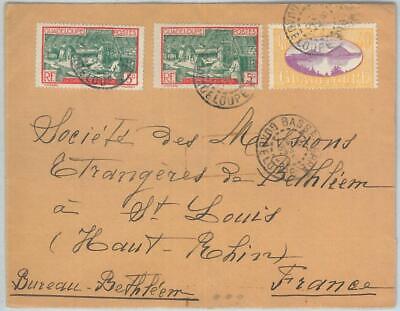 GUADELOUPE POSTES
RF 5c
GUADELOUPE POSTES
RF 5c
GUADELOUPE
GUADELOUPE
BASSE
Société des Missions
Etrangères de Bethléem
à St Louis
(Haut-Rhin)
Bureau-Bethléem France